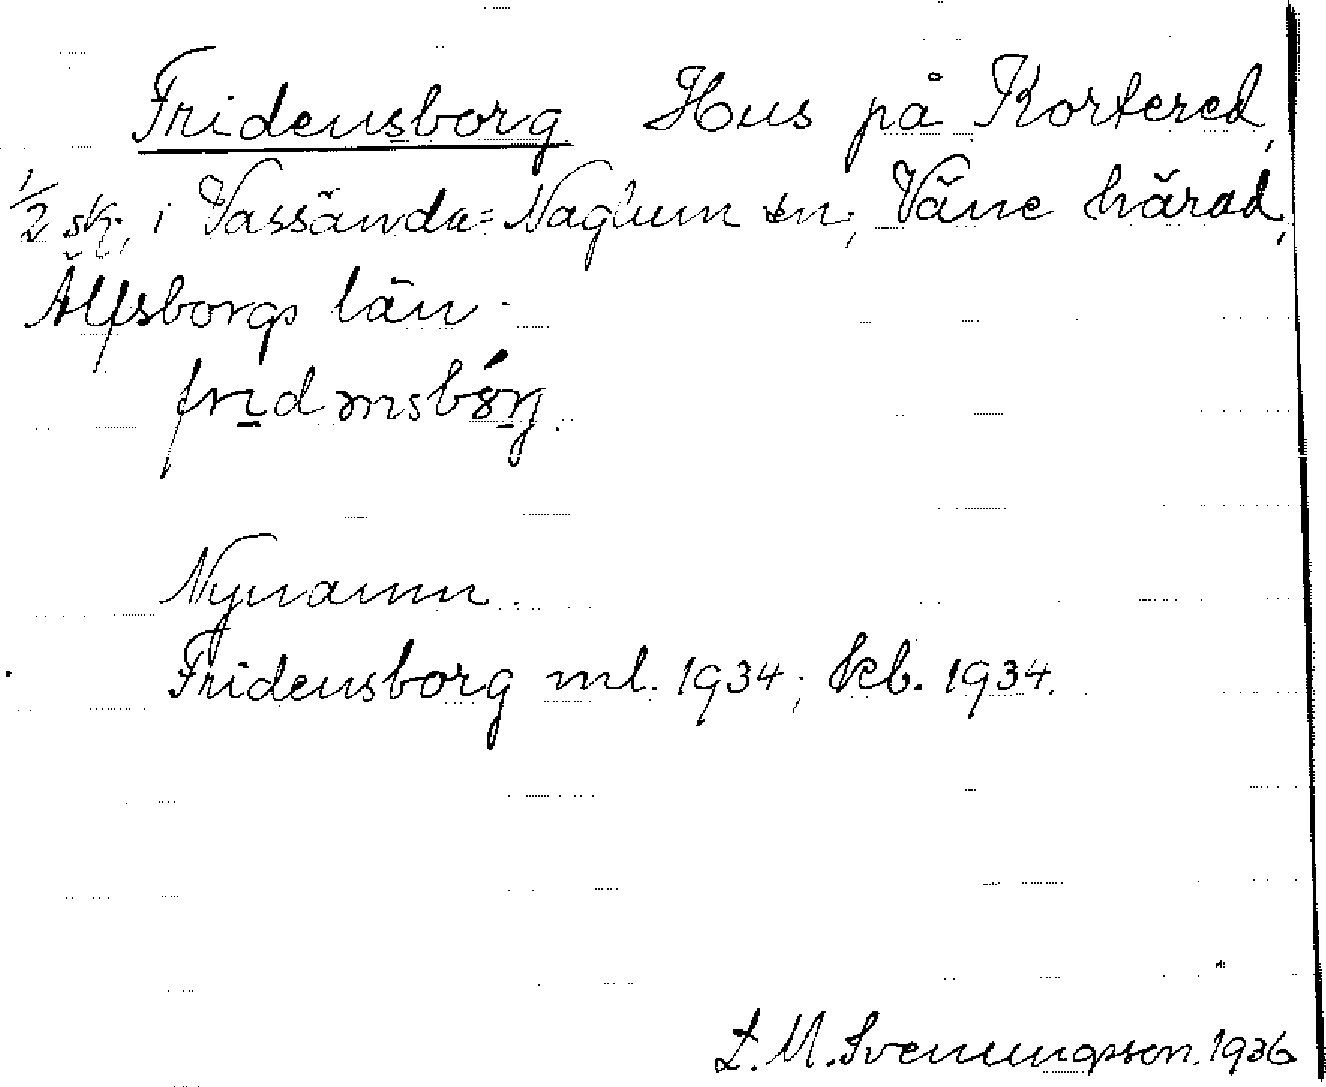 Fridensborg Hus på Kortered,
1/2 sk., i Vassända-Naglum sn, Väne härad,
Älfsborgs län.
fridənsbórj.
Nynamn.
Fridensborg ml. 1934; kb. 1934.
L. M. Svenungsson. 1936